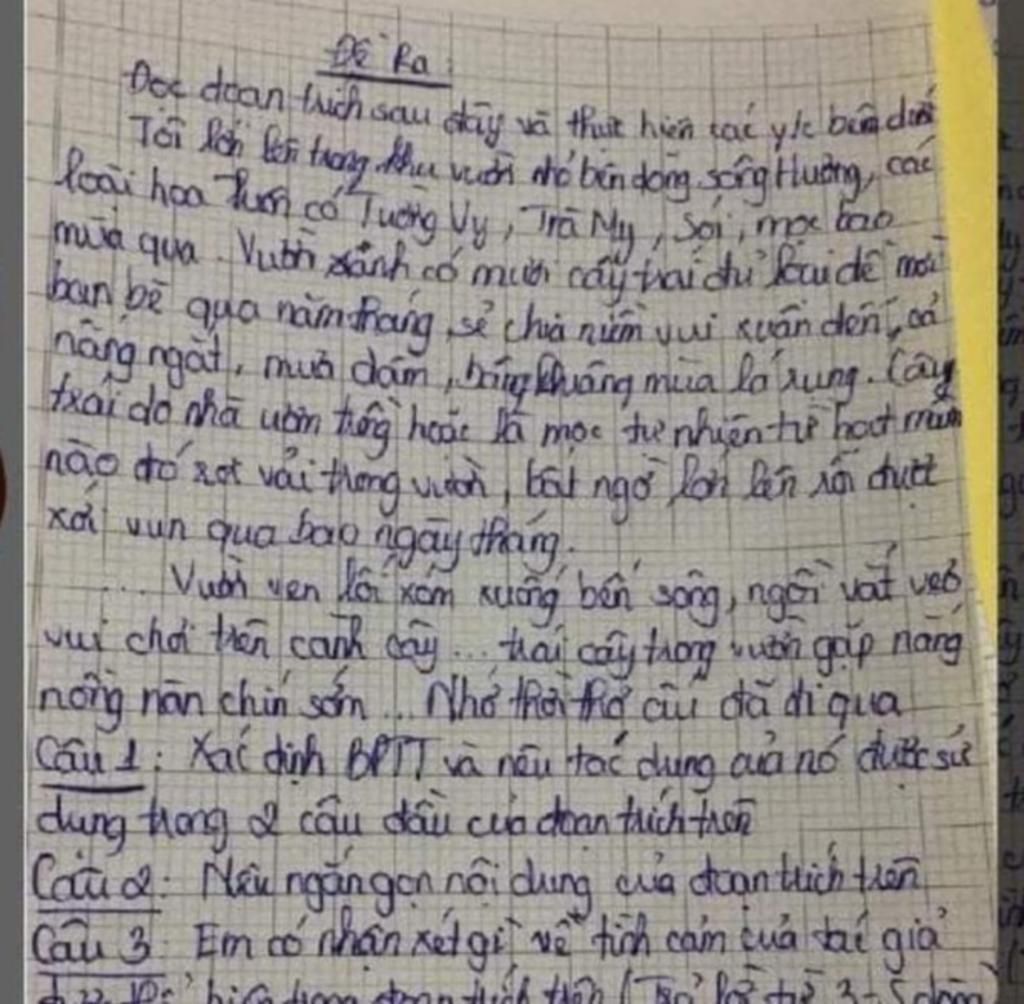 Đề Ra:
Đọc đoạn trích sau đây và thực hiện các y/c bên dưới
Tôi lớn lên trong khu vườn nhỏ bên dòng sông Hương, các
loài hoa luôn có Tường Vy, Trà My, Sói, mọc bao
mùa qua. Vườn xanh có mười cây trái đủ loài để mời
bạn bè qua năm tháng, sẻ chia niềm vui xuân đến, cả
nắng ngát, mưa dầm, bâng khuâng mùa lá rụng. Cây
trái do nhà ươm trồng hoặc là mọc tự nhiên từ hạt mầm
nào đó rơi vãi trong vườn, bất ngờ lớn lên rồi được
xới vun qua bao ngày tháng.
... Vườn ven lối xóm xuống bến sông, ngồi vắt vẻo
vui chơi trên cành cây... trái cây trong vườn gặp nắng
nồng nàn chín sớm... Nhớ thời thơ ấu đã đi qua
Câu 1: Xác định BPTT và nêu tác dụng của nó được sử
dụng trong 2 câu đầu của đoạn trích trên
Câu 2: Nêu ngắn gọn nội dung của đoạn trích trên
Câu 3: Em có nhận xét gì về tình cảm của tác giả
trong đoạn trích trên (Trả lời từ 3-5 dòng